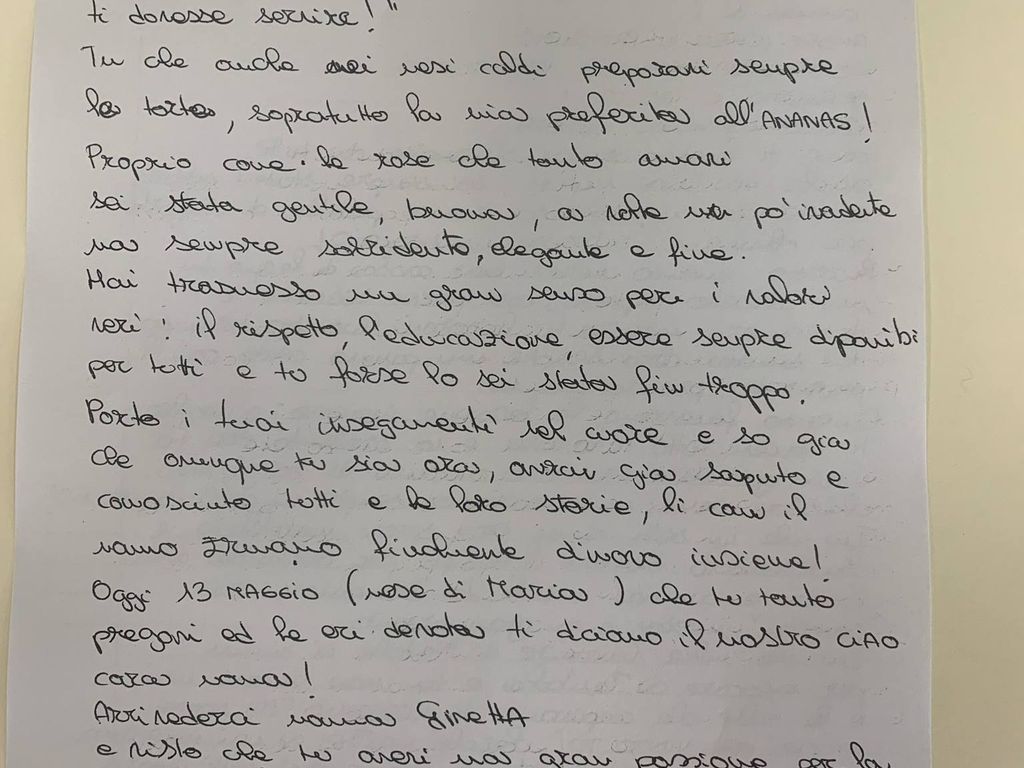 ti dovesse servire!"
Tu che anche nei mesi caldi preparavi sempre
le torte, sopratutto la mia preferita all'ANANAS!
Proprio come le rose che tanto amavi
sei stata gentile, buona, a volte un po' invadente
ma sempre sorridente, elegante e fine.
Hai trasmesso un gran senso per i valori
veri: il rispetto, l'educazione, essere sempre diponibi
per tutti e tu forse lo sei stata fin troppo.
Porto i tuoi insegamenti nel cuore e so già
che ovunque tu sia ora, avrai già saputo e
conosciuto tutti e le loro storie, li con il
nonno finalmente di nuovo insieme!
Oggi 13 MAGGIO (mese di Maria) che tu tanto
pregavi ed le eri devota ti diciamo il nostro CIAO
cara nonna!
Arrivederci nonna GinettA
e visto che tu avevi una gran passione per la